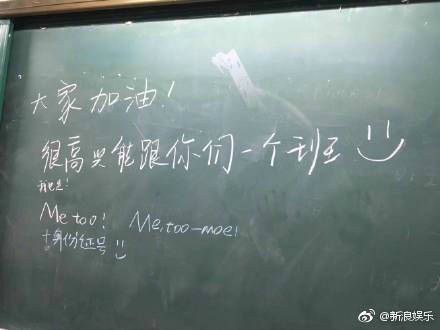 大家加油！
很高兴能跟你们一个班
我也是！
Me too! Me, too-moe!
十身份证号
@新浪娱乐